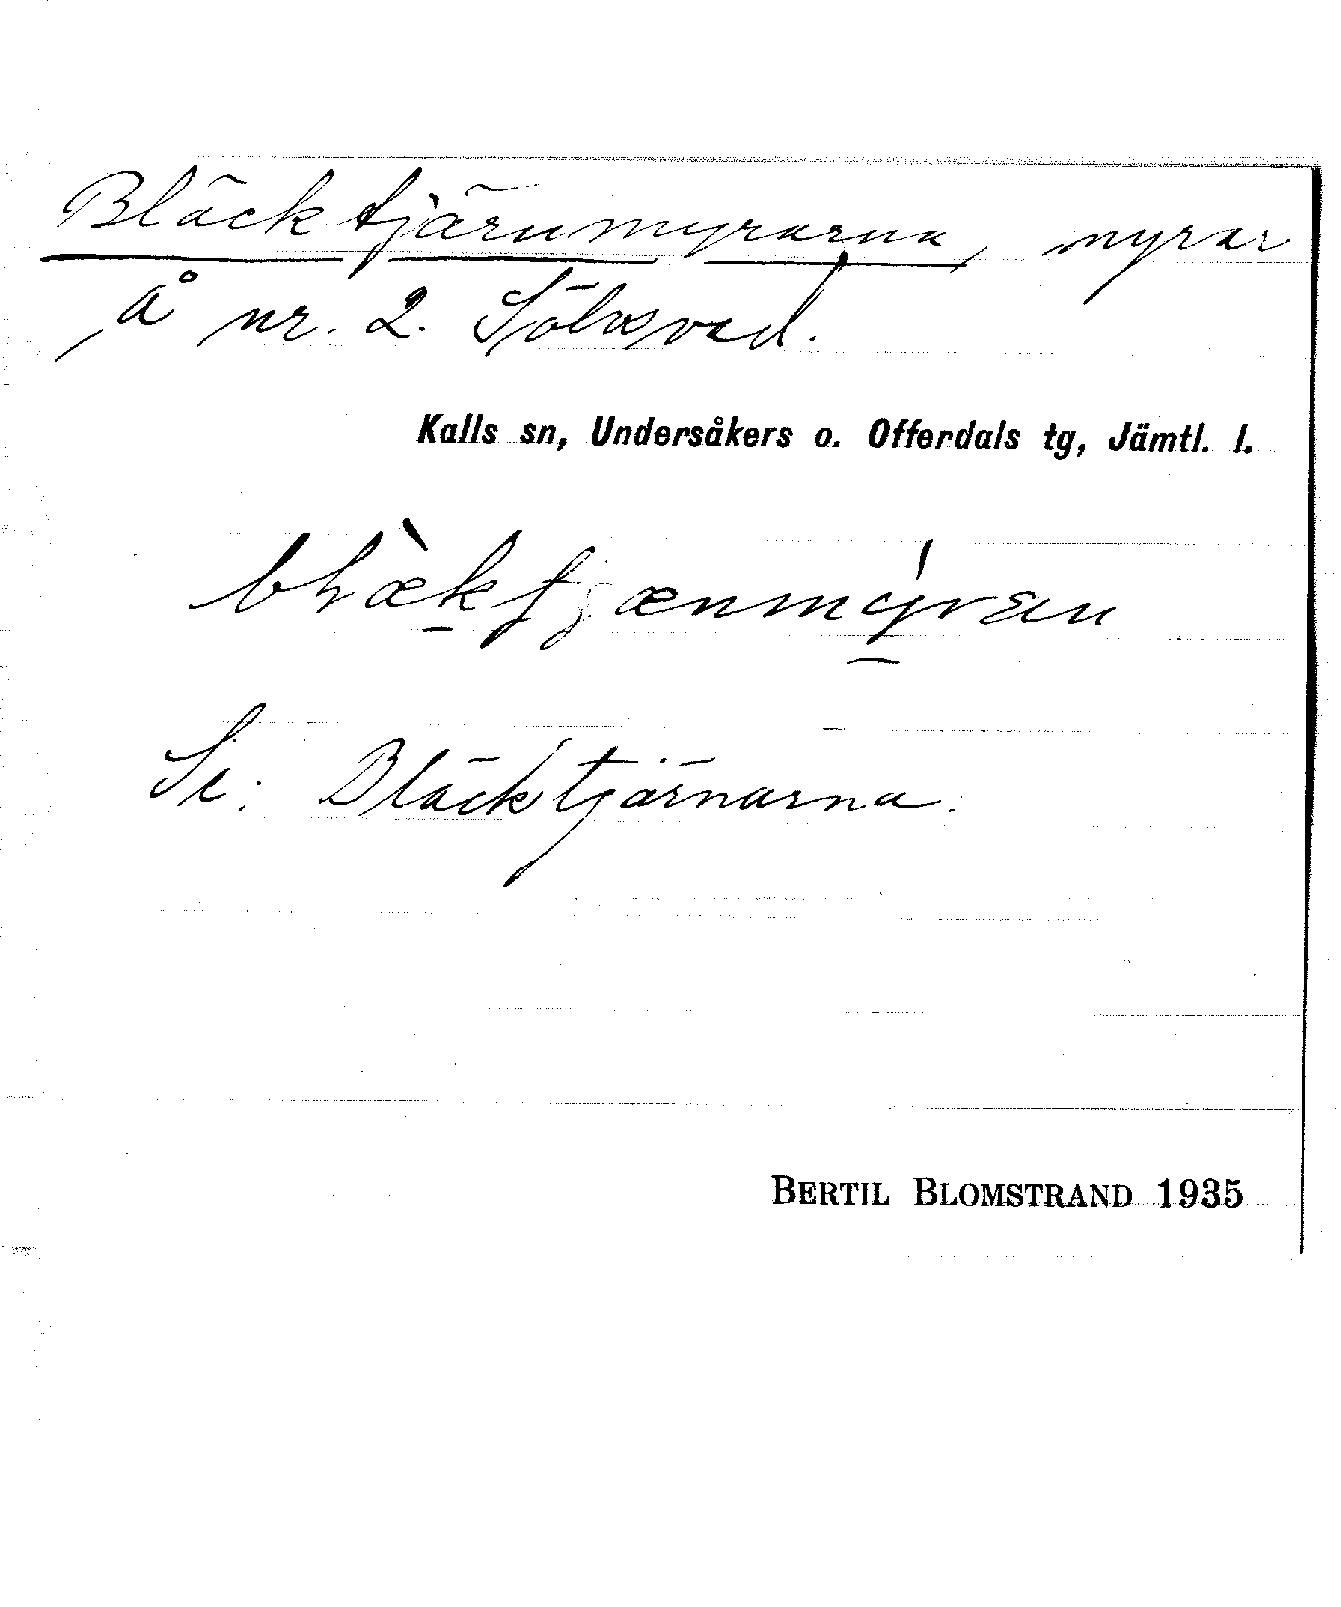 Bläcktjärnmyrarna, myrar
å nr. 2. Sölvsved.
Kalls sn, Undersåkers o. Offerdals tg, Jämtl. l.
Se: Bläcktjärnarna.
BERTIL BLOMSTRAND 1935